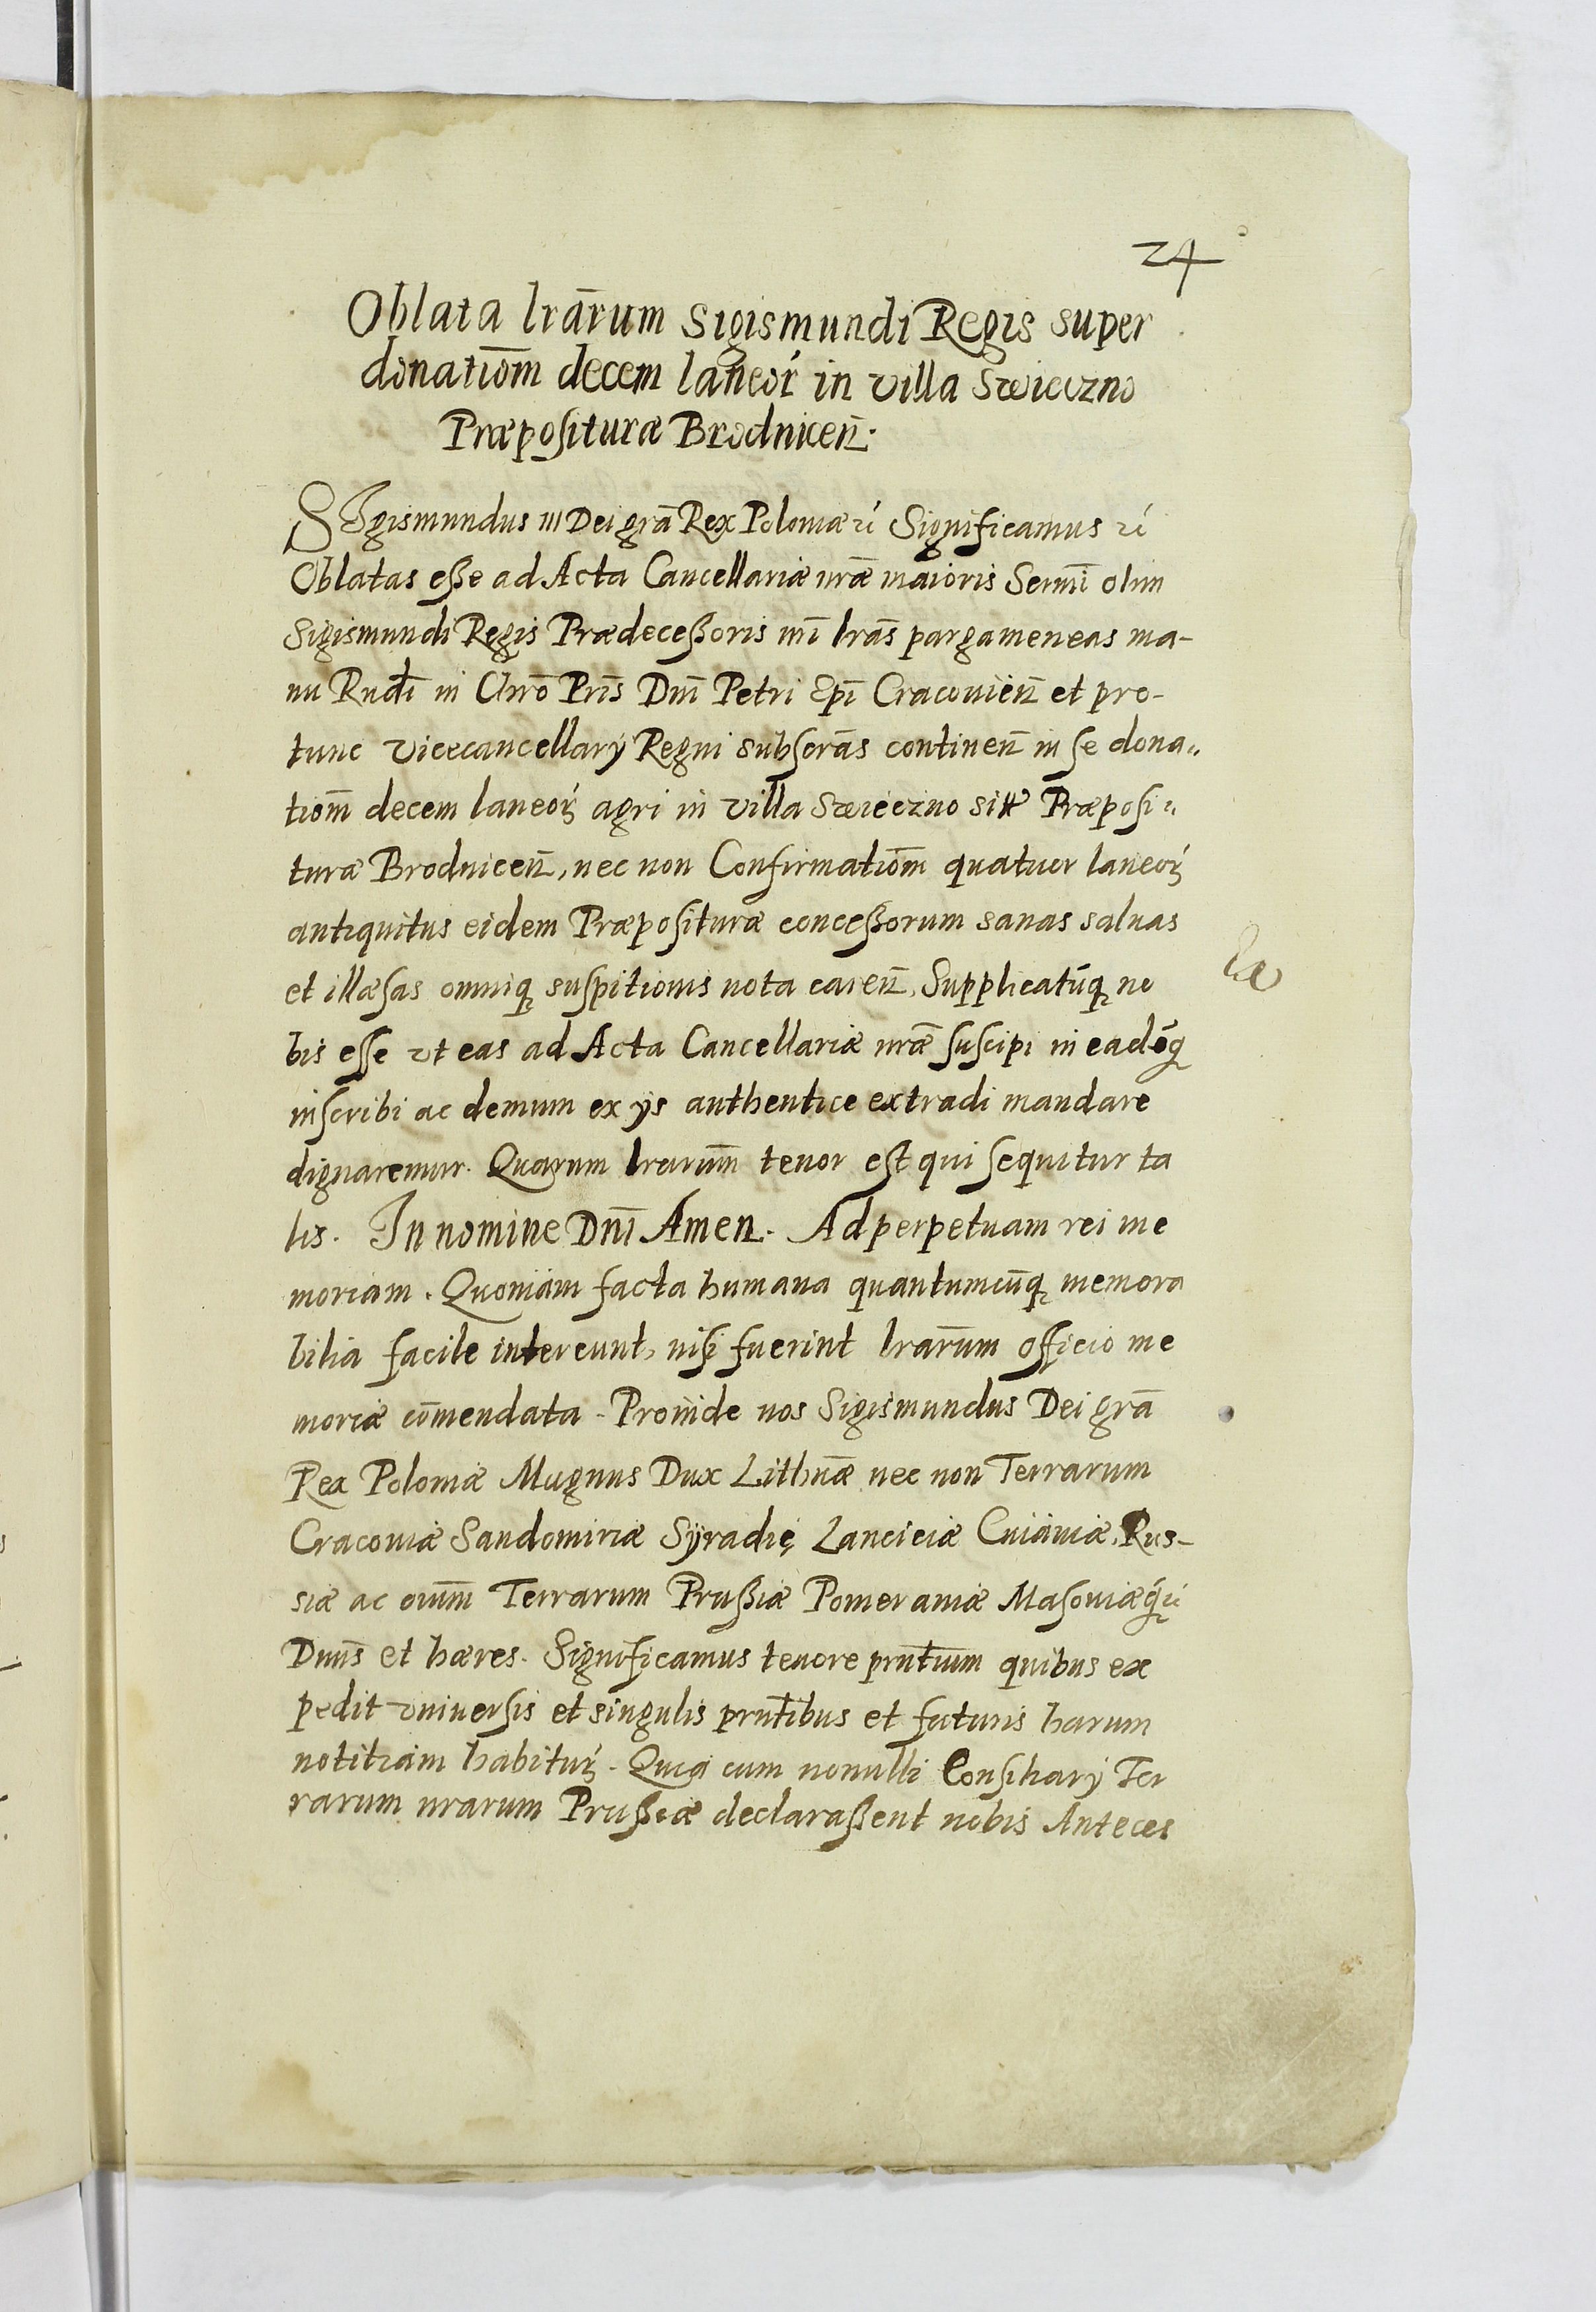 24
Oblata lrārum Sigismundi Regis super
donatiōm decem laneoꝝ in villa Swieczno
Præpositura Brodniceñ.
SIgismundus III Dei grā Rex Poloniæ ꝛc Significamus ꝛc
Oblatas eße ad Acta Cancellariæ nrǣ maioris Sermī olim
Sigismundi Regis Prædeceßoris nrī lrās pargameneas ma-
nu Rndī in Chrō Prīs Dnī Petri Epī Cracovieñ et pro-
tunc Vicecancellarÿ Regni subscrās continen̄ in se dona-
tiōm decem laneoꝝ agri in villa Swieczno sitt Præposi-
turæ Brodniceñ, nec non Confirmatiōm quatuor laneoꝝ
antiquitus eidem Præposituræ conceßorum sanas saluas
et illæsas omniq̨ suspitionis nota careñ, Supplicatūq̨ no
bis esse vt eas ad Acta Cancellariæ nrǣ suscipi in eadēq̨
inscribi ac demum ex ÿs authentice extradi mandare
dignaremur. Quarum lrarūm tenor est qui sequitur ta
lis. In nomine Dnī Amen. Ad perpetuam rei me
moriam. Quoniam facta humana quantumcūq̨ memora
bilia facile intereunt, nisi fuerint lrarūm officio me
moriæ cōmendata. Proinde nos Sigismundus Dei grā
Rex Poloniæ Magnus Dux Lithuǣ nec non Terrarum
Cracoviæ Sandomiriæ Syradię Lanciciæ Cuiaviæ, Rus-
siæ ac oiūm Terrarum Prußiæ Pomeraniæ Masoviæq̨ ꝛc
Dnūs et hæres. Significamus tenore prntīum quibus ex
pedit vniversis et singulis prntībus et futuris harum
notitiam habiturꝫ. Quia cum nonulli Consiliarÿ Ter
rarum nrarum Prußiæ declaraßent nobis Anteces